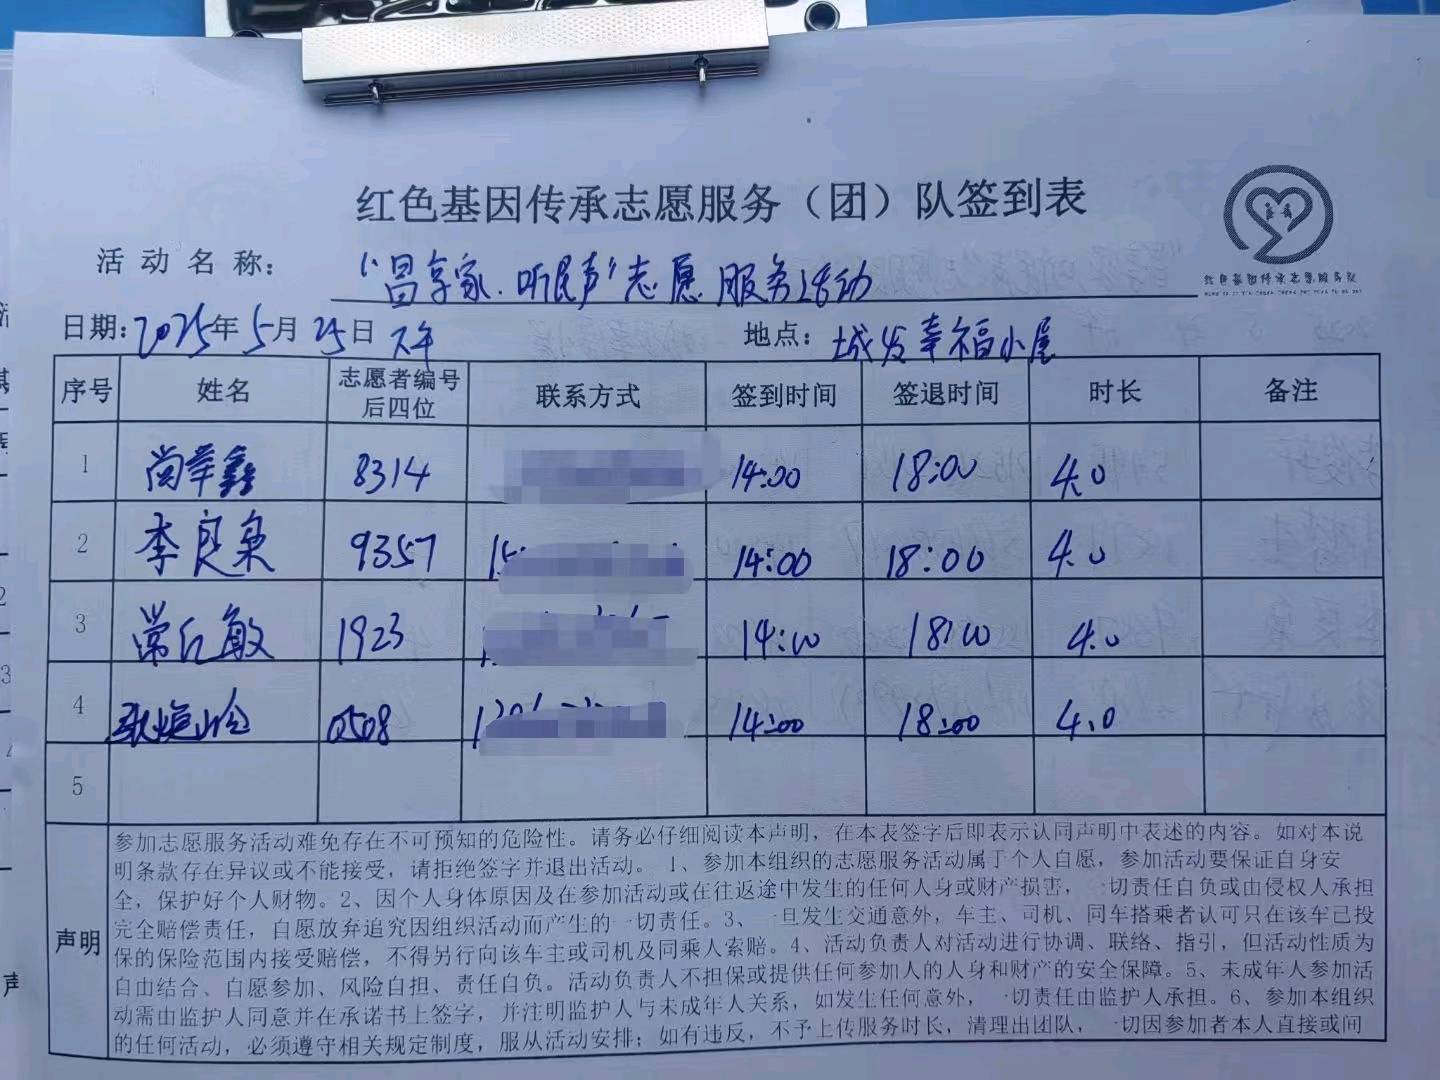 红色基因传承志愿服务（团）队签到表
红色基因传承志愿服务队
活动名称： “昌享家.听民声”志愿服务活动
日期：2025年5月25日 下午 地点：城发幸福小屋
序号 姓名 志愿者编号后四位 联系方式 签到时间 签退时间 时长 备注
1 尚荣鑫 8314 14:00 18:00 4.0
2 李良枭 9357 15 14:00 18:00 4.0
3 常红敏 1923 14:00 18:00 4.0
4 耿 0508 14:00 18:00 4.0
5
声明
参加志愿服务活动难免存在不可预知的危险性。请务必仔细阅读本声明，在本表签字后即表示认同声明中表述的内容。如对本说
明条款存在异议或不能接受，请拒绝签字并退出活动。 1、参加本组织的志愿服务活动属于个人自愿，参加活动要保证自身安
全，保护好个人财物。2、因个人身体原因及在参加活动或在往返途中发生的任何人身或财产损害，一切责任自负或由侵权人承担
完全赔偿责任，自愿放弃追究因组织活动而产生的一切责任。3、一旦发生交通意外，车主、司机、同车搭乘者认可只在该车已投
保的保险范围内接受赔偿，不得另行向该车主或司机及同乘人索赔。4、活动负责人对活动进行协调、联络、指引，但活动性质为
自由结合、自愿参加、风险自担、责任自负。活动负责人不担保或提供任何参加人的人身和财产的安全保障。5、未成年人参加活
动需由监护人同意并在承诺书上签字，并注明监护人与未成年人关系，如发生任何意外，一切责任由监护人承担。6、参加本组织
的任何活动，必须遵守相关规定制度，服从活动安排；如有违反，不予上传服务时长，清理出团队，一切因参加者本人直接或间